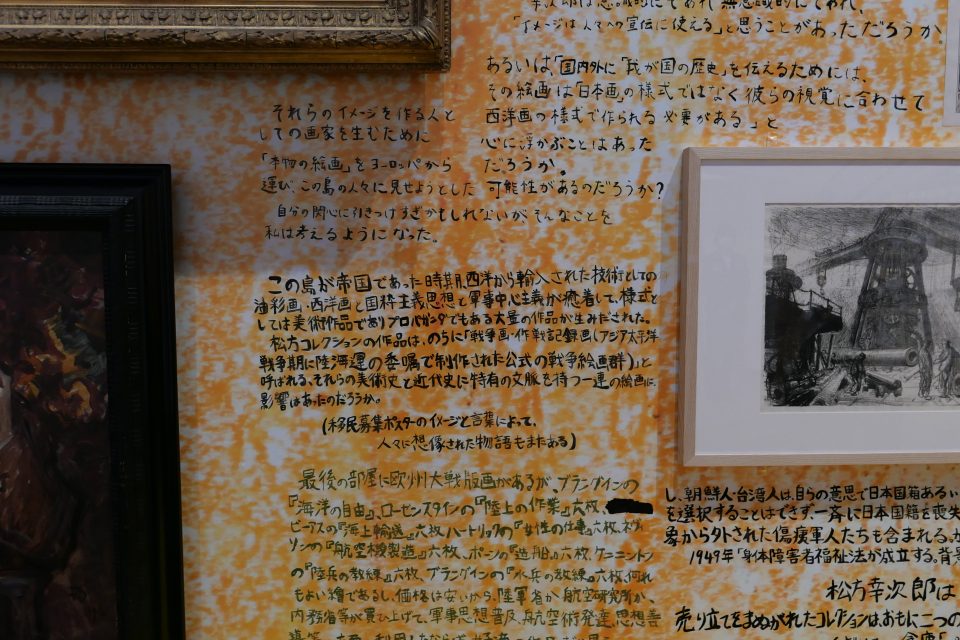 「イメージは人々への宣伝に使える」と思うことがあっただろうか。
あるいは、「国内外に「我が国の歴史」を伝えるためには、
その絵画は「日本画」の様式ではなく彼らの視覚に合わせて
西洋画の様式で作られる必要がある」と
心に浮かぶことはあった
だろうか。
可能性があるのだろうか?
それらのイメージを作る人と
しての画家を生むために
「本物の絵画」をヨーロッパから
運び、この島の人々に見せようとした
自分の関心に引きつけすぎかもしれないが、そんなことを
私は考えるようになった。
この島が帝国であった時期、西洋から輸入された技術としての
油彩画・西洋画と国粋主義思想と軍事中心主義が癒着して、様式と
しては美術作品でありプロパガンダでもある大量の作品が生みだされた。
松方コレクションの作品は、のちに「戦争画・作戦記録画(アジア太平洋
戦争期に陸海軍の委嘱で制作された公式の戦争絵画群)」と
呼ばれる、それらの美術史と近代史に特有の文脈を持つ一連の絵画に、
影響はあったのだろうか。
(移民募集ポスターのイメージと言葉によって、
人々に想像された物語もまたある)
最後の部屋に欧州大戦版画があるが ブラングインの
『海洋の自由』、ローゼンスタインの『陸上の作業』六枚、
ピーアスの『海上輸送』六枚、ハートリックの『女性の仕事』六枚、ネヴィ
ソンの『航空機製造』六枚、ボーンの『造船』六枚、ケニントン
の『陸兵の教練』六枚、ブラングインの『水兵の教練』六枚、何れ
もよい繪であるし、価格は安いから、陸軍省か、航空研究所か、
内務省等が買ひ上げて、軍事思想普及、航空術発達、思想善
し、朝鮮人・台湾人は、自らの意思で日本国籍あるい
を選択することはできず一斉に日本国籍を喪失
象から外された傷痍軍人たちも含まれる。
1949年「身体障害者福祉法が成立する。背景
松方幸次郎は
売り立てをまぬがれたコレクションは、おもに二つの